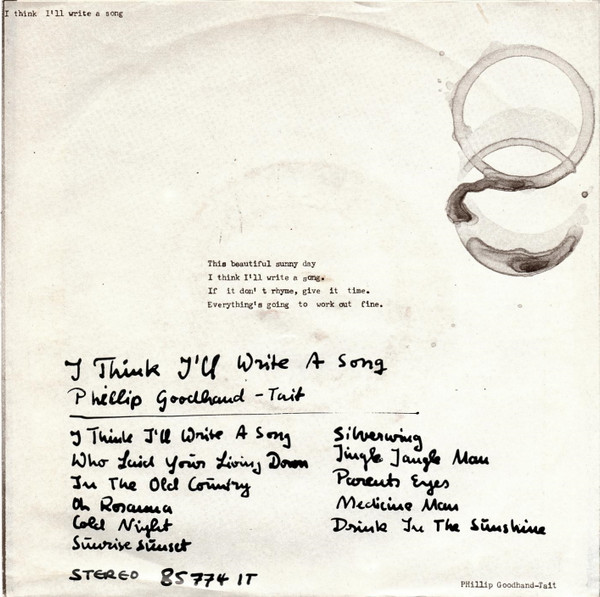 I think I'll write a song
This beautiful sunny day
I think I'll write a song.
If it don't rhyme, give it time.
Everything's going to work out fine.
I Think I'll Write A Song
Phillip Goodhand-Tait
I Think I'll Write A Song
Who Laid Yoür Living Down
In The Old Coüntry
Oh Rosanna
Cold Night
Sünrise Sünset
Silverwing
Jingle Jangle Man
Parents Eyes
Medicine Man
Drink In The Sünshine
STEREO 85 774 IT
PHillip Goodhand-Tait